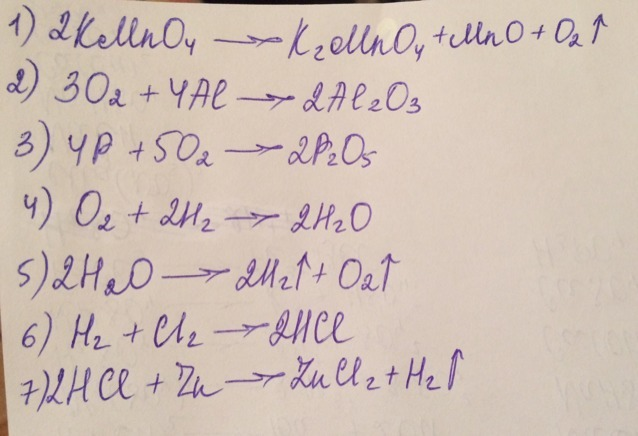 1) 2KMnO₄ → K₂MnO₄ + MnO + O₂↑
2) 3O₂ + 4Al → 2Al₂O₃
3) 4P + 5O₂ → 2P₂O₅
4) O₂ + 2H₂ → 2H₂O
5) 2H₂O → 2H₂↑ + O₂↑
6) H₂ + Cl₂ → 2HCl
7) 2HCl + Zn → ZnCl₂ + H₂↑